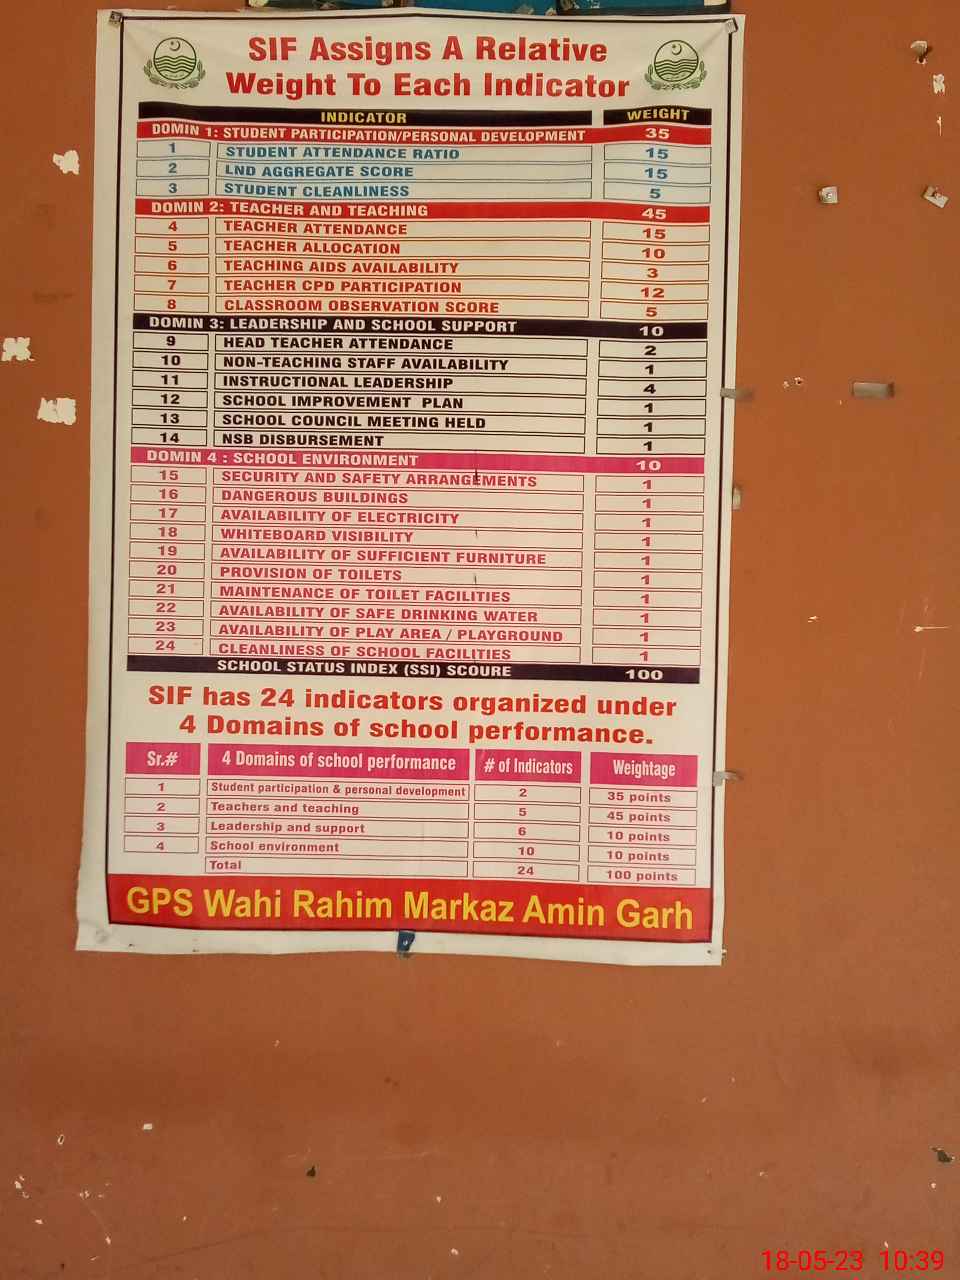 SIF Assigns A Relative
Weight To Each Indicator
INDICATOR WEIGHT
DOMIN 1: STUDENT PARTICIPATION/PERSONAL DEVELOPMENT 35
1 STUDENT ATTENDANCE RATIO 15
2 LND AGGREGATE SCORE 15
3 STUDENT CLEANLINESS 5
DOMIN 2: TEACHER AND TEACHING 45
4 TEACHER ATTENDANCE 15
5 TEACHER ALLOCATION 10
6 TEACHING AIDS AVAILABILITY 3
7 TEACHER CPD PARTICIPATION 12
8 CLASSROOM OBSERVATION SCORE 5
DOMIN 3: LEADERSHIP AND SCHOOL SUPPORT 10
9 HEAD TEACHER ATTENDANCE 2
10 NON-TEACHING STAFF AVAILABILITY 1
11 INSTRUCTIONAL LEADERSHIP 4
12 SCHOOL IMPROVEMENT PLAN 1
13 SCHOOL COUNCIL MEETING HELD 1
14 NSB DISBURSEMENT 1
DOMIN 4 : SCHOOL ENVIRONMENT 10
15 SECURITY AND SAFETY ARRANGEMENTS 1
16 DANGEROUS BUILDINGS 1
17 AVAILABILITY OF ELECTRICITY 1
18 WHITEBOARD VISIBILITY 1
19 AVAILABILITY OF SUFFICIENT FURNITURE 1
20 PROVISION OF TOILETS 1
21 MAINTENANCE OF TOILET FACILITIES 1
22 AVAILABILITY OF SAFE DRINKING WATER 1
23 AVAILABILITY OF PLAY AREA / PLAYGROUND 1
24 CLEANLINESS OF SCHOOL FACILITIES 1
SCHOOL STATUS INDEX (SSI) SCOURE 100
SIF has 24 indicators organized under
4 Domains of school performance.
Sr.# 4 Domains of school performance # of Indicators Weightage
1 Student participation & personal development 2 35 points
2 Teachers and teaching 5 45 points
3 Leadership and support 6 10 points
4 School environment 10 10 points
Total 24 100 points
GPS Wahi Rahim Markaz Amin Garh
18-05-23 10:39